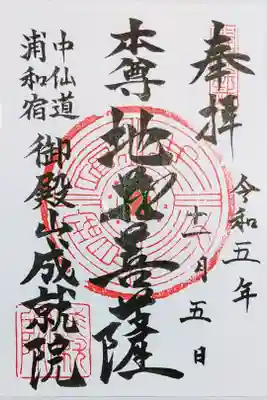 奉拝
令和五年
十一月五日
本尊
地蔵菩薩
中仙道
浦和宿
御殿山成就院